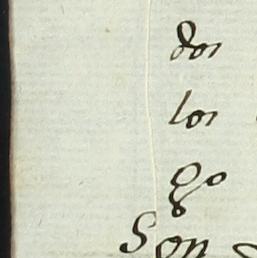 dos
los
Son